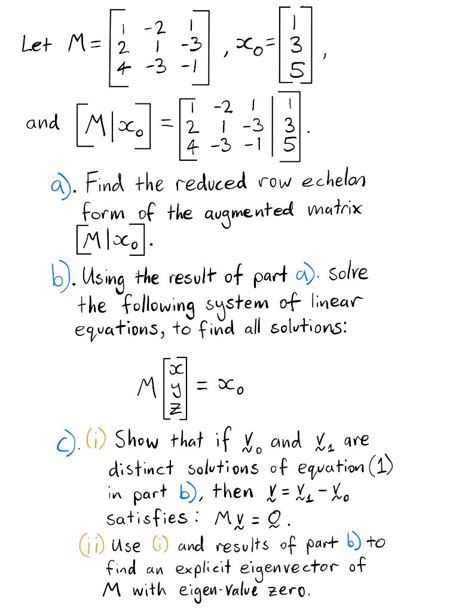 Let M = [1 -2 1; 2 1 -3; 4 -3 -1], x₀ = [1; 3; 5],
and [M|x₀] = [1 -2 1 | 1; 2 1 -3 | 3; 4 -3 -1 | 5].
a). Find the reduced row echelon
form of the augmented matrix
[M|x₀].
b). Using the result of part a). solve
the following system of linear
equations, to find all solutions:
M [x; y; z] = x₀
c). (i) Show that if v₀ and v₁ are
distinct solutions of equation (1)
in part b), then v = v₁ - v₀
satisfies: Mv = 0.
(ii) Use (i) and results of part b) to
find an explicit eigenvector of
M with eigen-value zero.